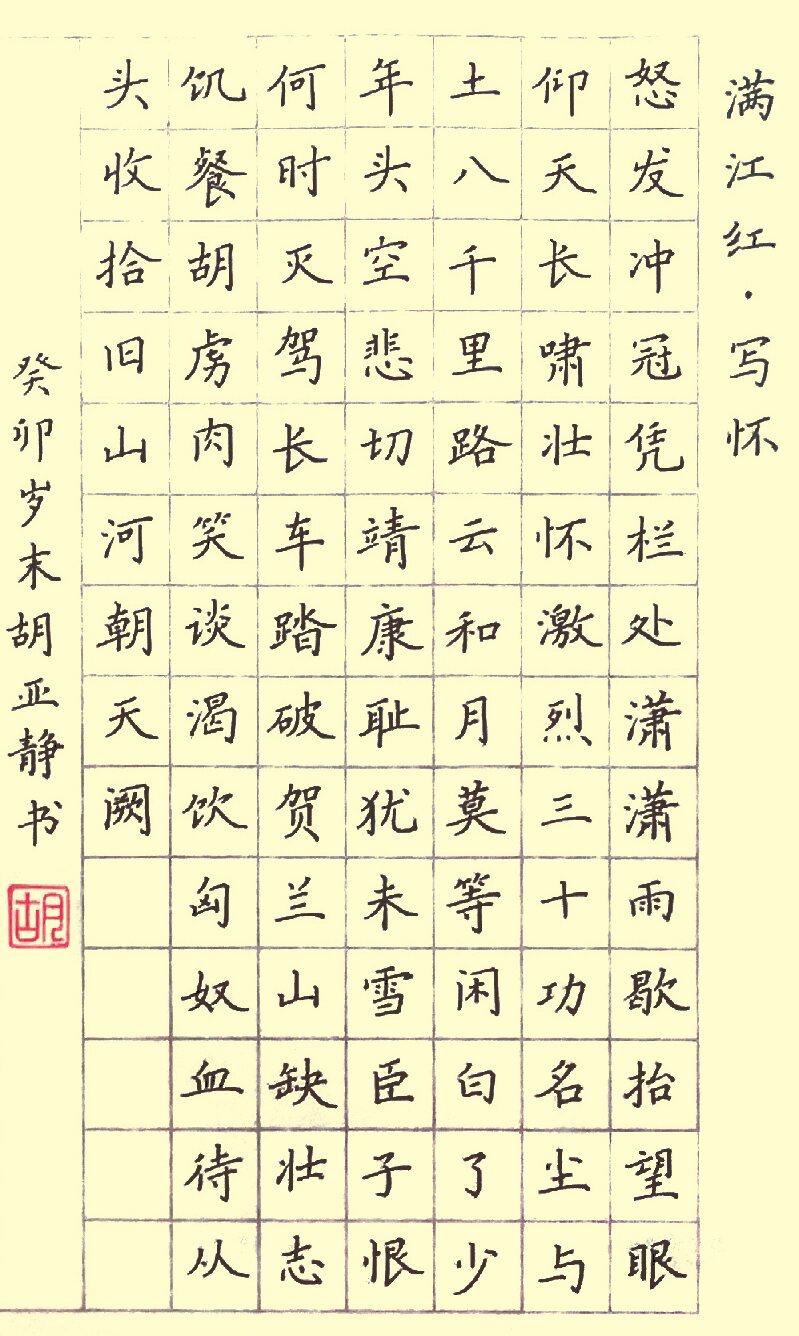 满江红·写怀
怒发冲冠凭栏处潇潇雨歇抬望眼
仰天长啸壮怀激烈三十功名尘与
土八千里路云和月莫等闲白了少
年头空悲切靖康耻犹未雪臣子恨
何时灭驾长车踏破贺兰山缺壮志
饥餐胡虏肉笑谈渴饮匈奴血待从
头收拾旧山河朝天阙
癸卯岁末胡亚静书
胡